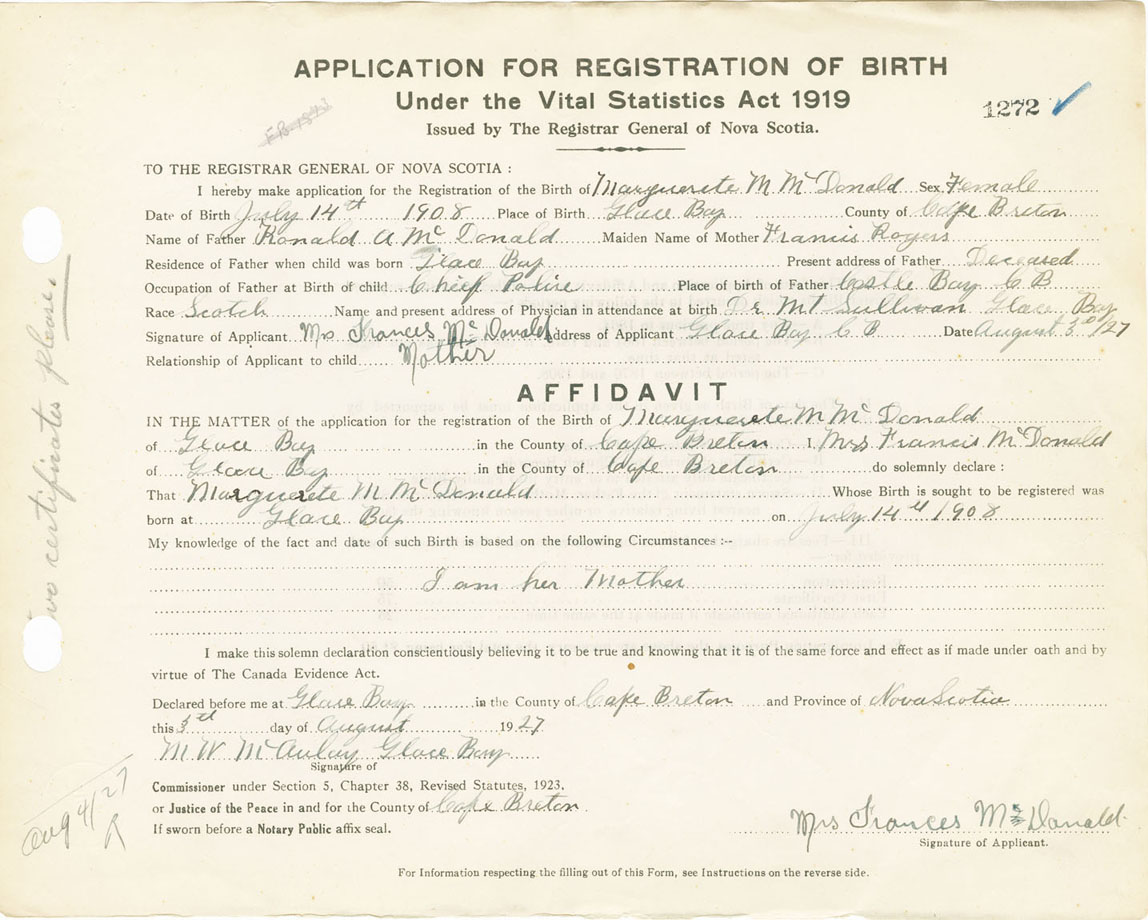 APPLICATION FOR REGISTRATION OF BIRTH
Under the Vital Statistics Act 1919
1272
Issued by The Registrar General of Nova Scotia.
TO THE REGISTRAR GENERAL OF NOVA SCOTIA :
I hereby make application for the Registration of the Birth of Marguerete M McDonald Sex Female
Date of Birth July 14th 1908 Place of Birth Glace Bay County of Cape Breton
Name of Father Ronald A McDonald Maiden Name of Mother Francis Rogers
Residence of Father when child was born Glace Bay Present address of Father Deceased
Occupation of Father at Birth of child Chief Police Place of birth of Father Castle Bay C B
Race Scotch Name and present address of Physician in attendance at birth Dr. MT Sullivan Glace Bay
Signature of Applicant Mrs Frances McDonald Address of Applicant Glace Bay C B Date August /27
Relationship of Applicant to child Mother
AFFIDAVIT
IN THE MATTER of the application for the registration of the Birth of Marguerete M McDonald
of Glace Bay in the County of Cape Breton I, Mrs Francis McDonald
of Glace Bay in the County of Cape Breton do solemnly declare :
That Marguerete M McDonald Whose Birth is sought to be registered was
born at Glace Bay on July 14th 1908
My knowledge of the fact and date of such Birth is based on the following Circumstances :--
I am her Mother
I make this solemn declaration conscientiously believing it to be true and knowing that it is of the same force and effect as if made under oath and by
virtue of The Canada Evidence Act.
Declared before me at Glace Bay in the County of Cape Breton and Province of Nova Scotia
this day of August 1927
M W McAulay Glace Bay
Signature of
Commissioner under Section 5, Chapter 38, Revised Statutes, 1923,
or Justice of the Peace in and for the County of Cape Breton
If sworn before a Notary Public affix seal.
Mrs Frances McDonald
Signature of Applicant.
For Information respecting the filling out of this Form, see Instructions on the reverse side.
certificates please.
Aug 4/27